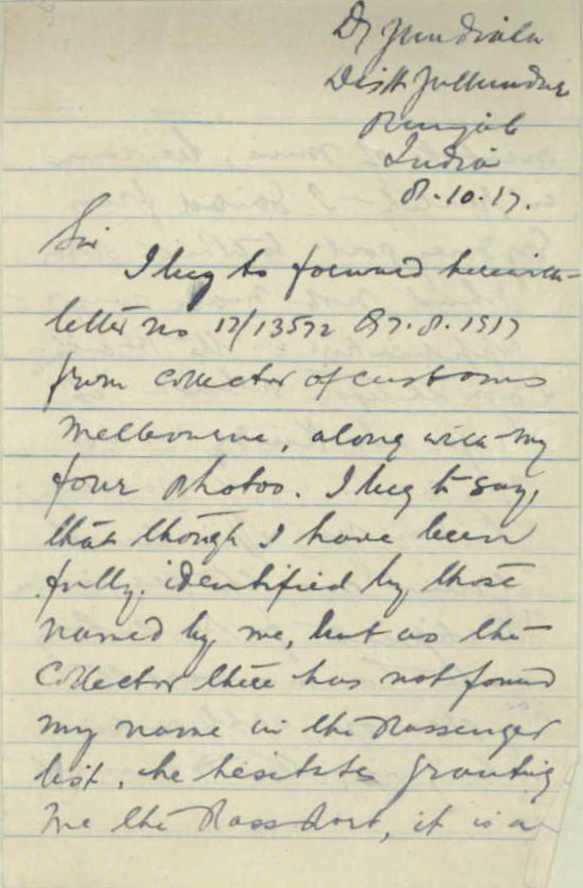 Jundiala
Distt Jullundur
Punjab
India
8.10.17.
Sir
I beg to forward herewith
letter no 17/13572 87.8.1917
from Collector of Customs
Melbourne, along with my
four photos. I beg to say,
that though I have been
fully identified by those
named by me, but as the
Collector there has not found
my name in the Passenger
list, he hesitates granting
me the Pass Port, it is a